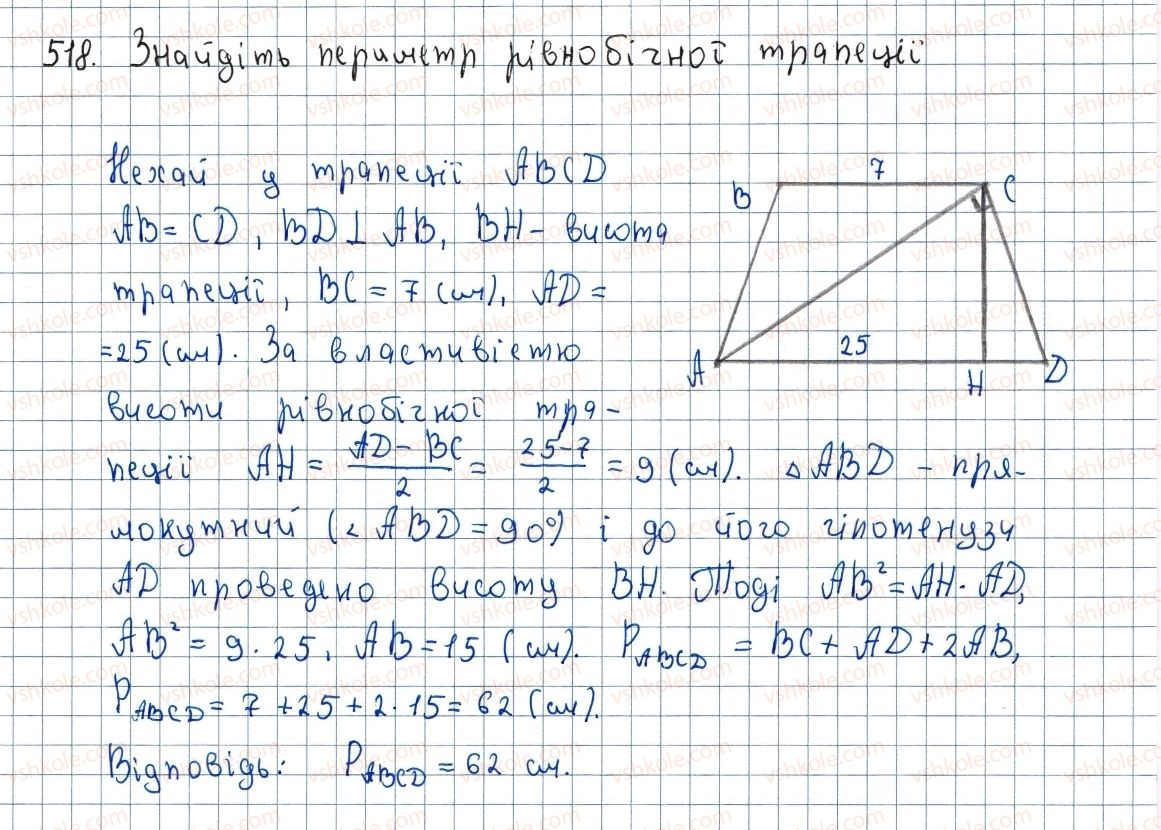 518. Знайдіть периметр рівнобічної трапеції
Нехай у трапеції ABCD
AB = CD, BD ⊥ AB, BH – висота
трапеції, BC = 7 (см), AD =
= 25 (см). За властивістю
висоти рівнобічної тра-
пеції AH = (AD – BC)/2 = (25 – 7)/2 = 9 (см). △ABD – пря-
мокутний (∠ABD = 90°) і до його гіпотенузи
AD проведено висоту BH. Тоді AB² = AH · AD,
AB² = 9 · 25, AB = 15 (см). P_ABCD = BC + AD + 2AB,
P_ABCD = 7 + 25 + 2 · 15 = 62 (см).
Відповідь: P_ABCD = 62 см.
B
7
C
A
25
H
D
vshkole.com